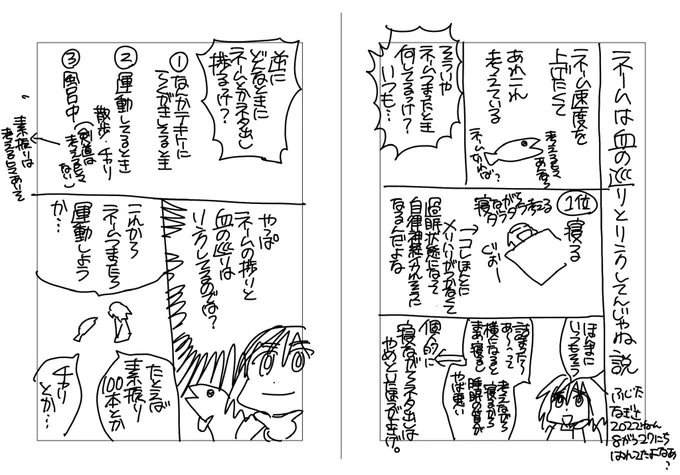 ネームは血の巡りとリンクしてんじゃね説
ネーム速度を
上げたくて
あれこれ
考えている
考えるなら
ネームやれば?
そういや
ネームつまったとき
何してるっけ?
いつも…
1位
寝る
寝ながら
ダラダラ考える
→コレほんとに
メリハリがつかなくて
仮眠状態になって
自律神経がイカれそうに
なるんだよな
ほんまに
いっちゃう
詰まった~
あ~って
横になると
まあ寝ると
考えながら
寝るから
睡眠の質が
やば悪い
個人的に
寝ながらネタ出しは
やめといたほうがよさげ。
2022ねん
8がつ27にち
逆に
どんなときに
ネームとかネタ出し
捗るっけ?
①なんかテキトーに
らくがきしてるとき
②運動してるとき
散歩・チャリ
③風呂中
考える
素振りは
考えるときあり
やっぱ
ネームの捗りと
血の巡りは
リンクしてるのでは?
これから
ネームつまったら
運動しよう
か…
たとえば
素振り
100本とか
チャリ
とか…